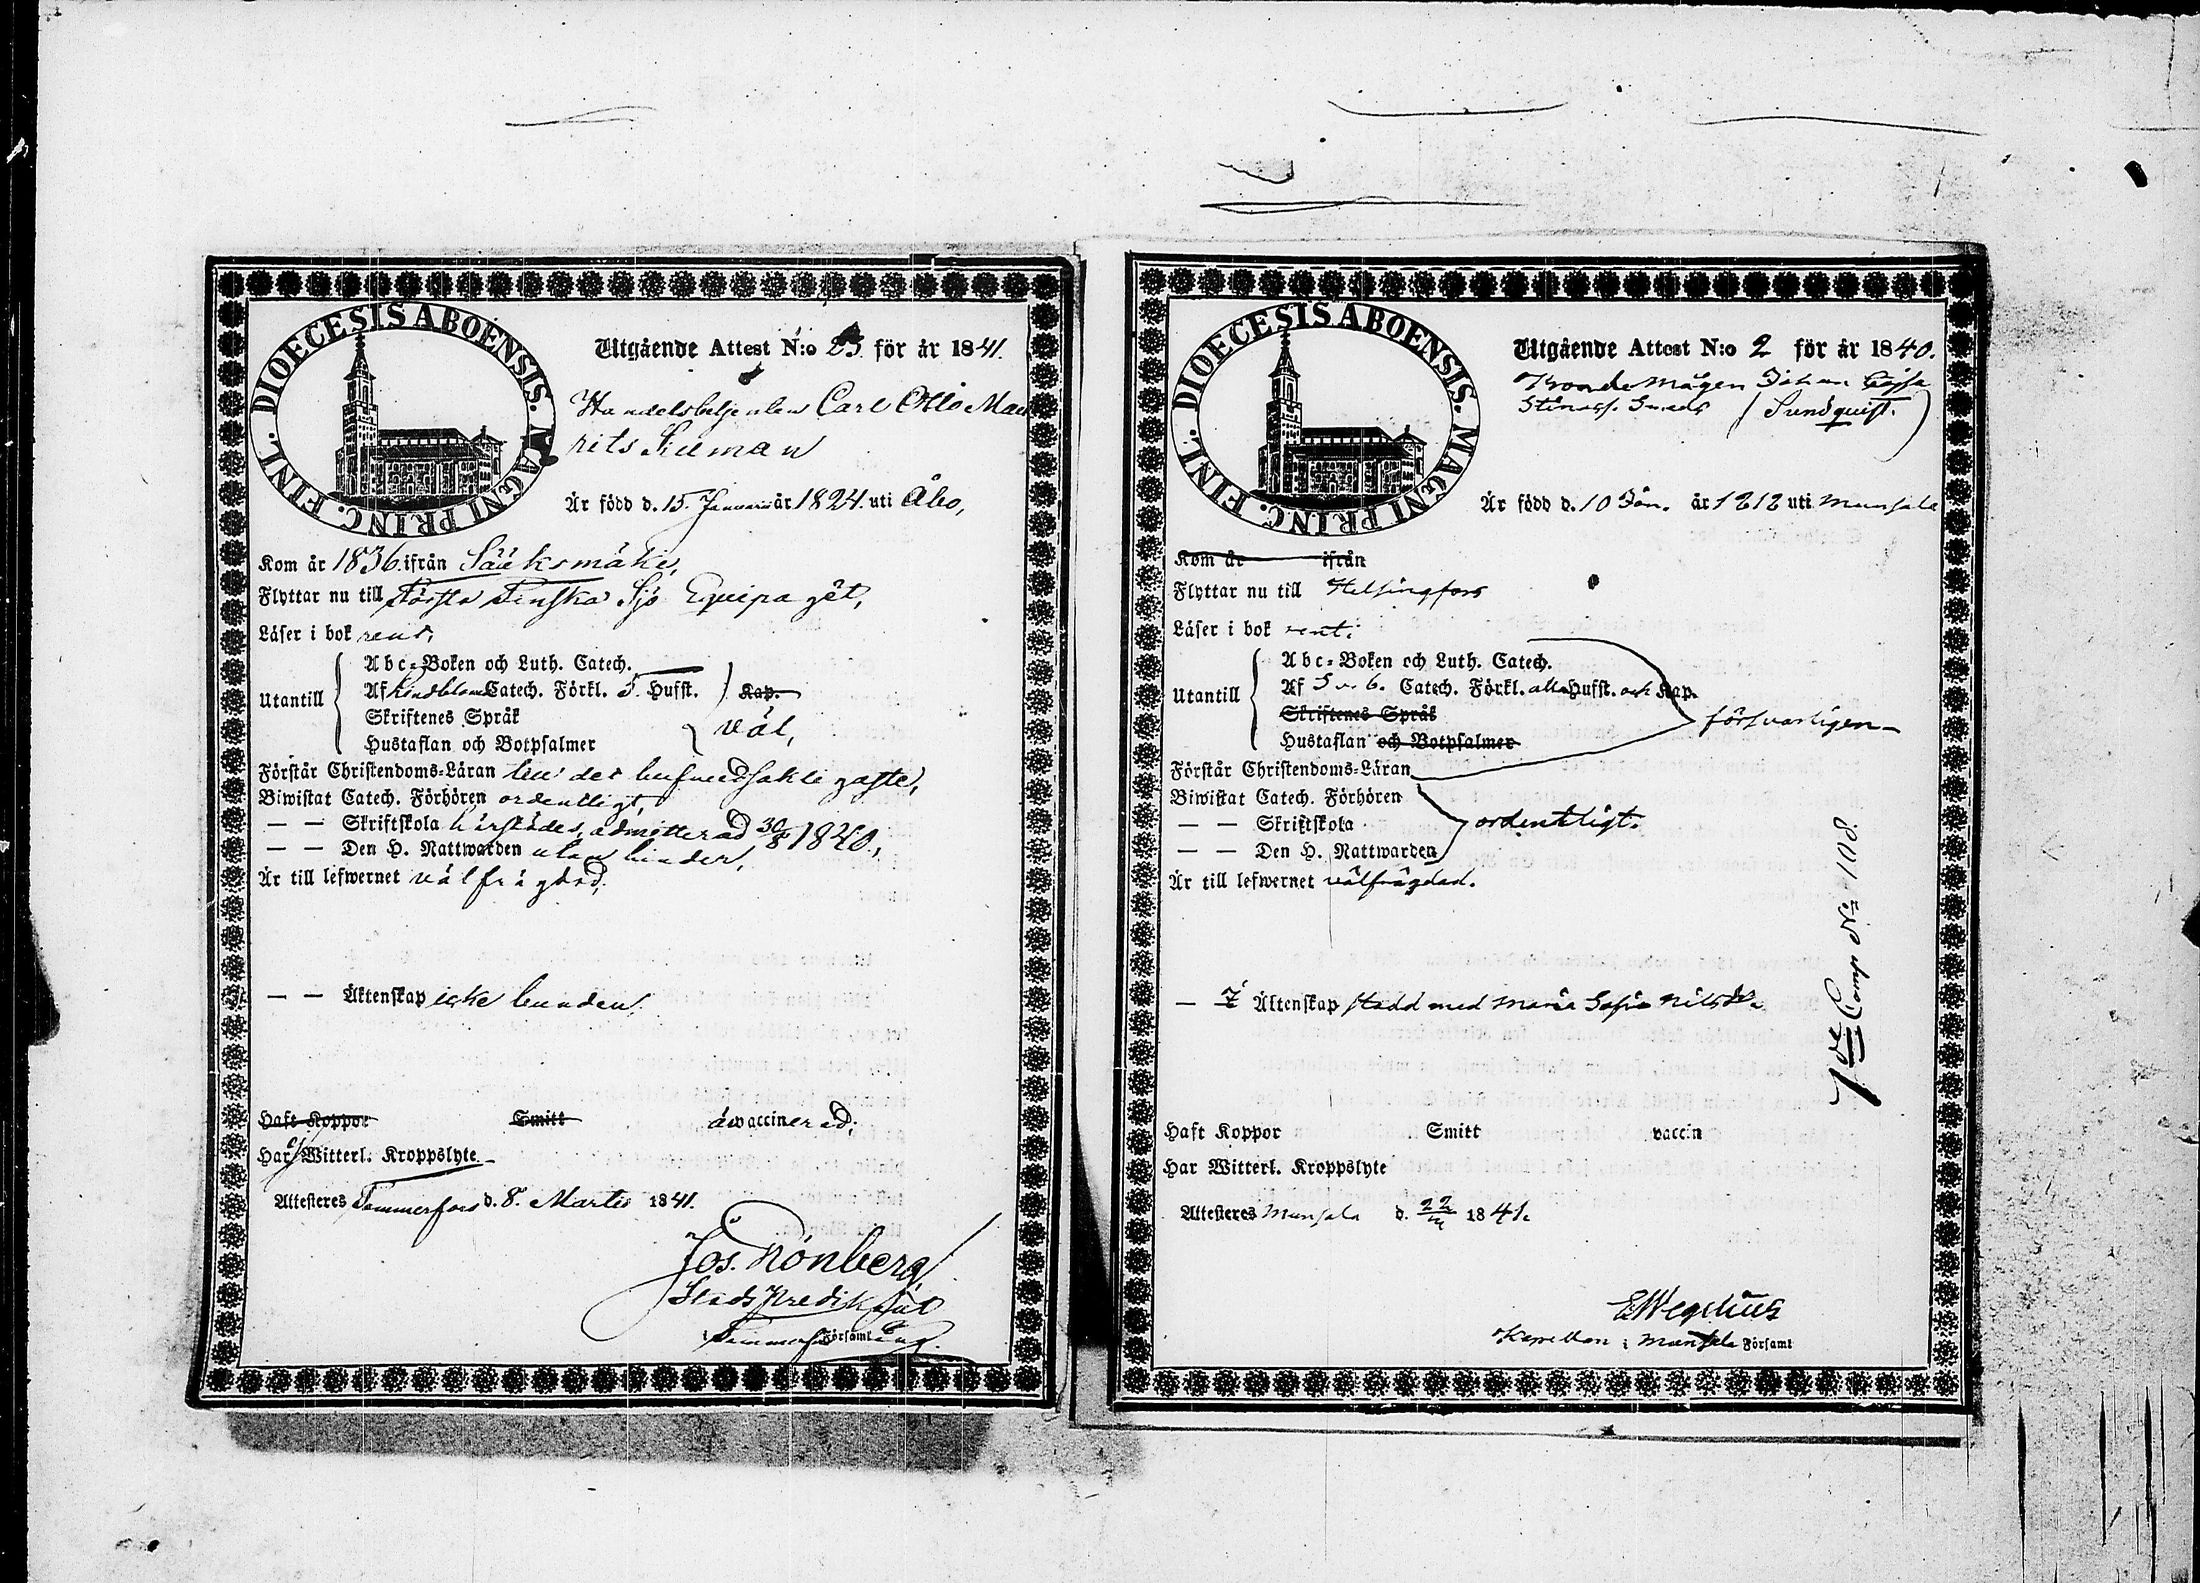 DIOECESIS ABOENSIS. MAGNI PRINC. FINL.
Utgående Attest N:o 23 för år 1841.
Carl Otto Mau
rits
Är född d. 15. Januarii år 1824. uti Åbo,
Kom år 1836. ifrån Sääksmäki,
Flyttar nu till Första Finska Sjö Equipaget,
Läser i bok rent,
Utantill
Abc-Boken och Luth. Catech.
Af Lindbloms Catech. Förkl. 5. Hufst. Kap.
Skriftenes Språk
väl,
Hustaflan och Botpsalmer
Förstår Christendoms-Läran
Biwistat Catech. Förhören ordentligt,
— — Skriftskola härstädes, admitterad 30/8 1840.,
— — Den H. Nattwarden utan hinder,
Är till lefwernet välfrägdad.
— — Äktenskap icke bunden.
Haft Koppor Smitt ä vaccinerad;
Har ej Witterl. Kroppslyte.
Attesteres Tammerfors d. 8. Martii 1841.
Jos. Grönberg,
Stads Predikant
i Tammerfors Församl
DIOECESIS ABOENSIS. MAGNI PRINC. FINL.
Utgående Attest N:o 2 för år 1840.
Johan
Sundquist.
Är född d. 10 Jan. år 1812 uti Munsala
Kom år ifrån
Flyttar nu till Helsingfors
Läser i bok rent.
Utantill
Abc-Boken och Luth. Catech.
Af S v. 6. Catech. Förkl. alla Hufst. och Kap.
Skriftenes Språk
försvarligen
Hustaflan och Botpsalmer
Förstår Christendoms-Läran
Biwistat Catech. Förhören
— — Skriftskola
ordentligt.
— — Den H. Nattwarden
Är till lefwernet välfrägdad.
— I Äktenskap stadd med Maria Sofia Nilsdr.
Haft Koppor Smitt vaccin
Har Witterl. Kroppslyte
Attesteres Munsala d. 22 1841.
E Wegelius
Kapellan i Munsala Församl
1de Comp No 108.